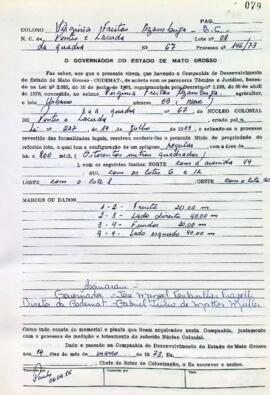 079
PAG.
COLONO Virginia Freitas Azambuja E.C.
N.C. Pontes e Lacerda Lote n.º 08
da quadra N.º 67 Processo n.º 146/73
O GOVERNADOR DO ESTADO DE MATO GROSSO
Faz saber, aos que o presente virem, que havendo a Companhia de Desenvolvimento
do Estado de Mato Grosso - CODEMAT-, de acôrdo com os pareceres Técnico e Jurídico, basea-
dos na Lei N.º
de 1970, concedido ao colono Virginia Freitas Azambuja
lote Urbano
da quadra n.º 67 DO NÚCLEO COLONIAL
de Pontes e Lacerda criado pela
Lei n.º de Julho e achando-se o processo
revestido das formalidades legais, resolveu conferir-lhe o presente título de propriedade
do referido lote, o qual tem a configuração de um polígono regular com a área
ha e 800 m2. (Oitocentos metros quadrados)
com os seguintes limites: NORTE com a avenida
SUL com os lotes
LESTE com o lote OESTE com o lote
MARCOS OU DADOS
1 - 2 - Frente 20,00 m
2 - 3 - Lado direito 40,00 m
3 - 4 - Fundos 20,00 m
4 - 1 - Lado esquerdo 40,00 m
Assinaram:
Governador - José Manoel Fontanillas Fragelli
Diretor da Codemat - Gabriel Julio de Mattos Müller
Como tudo consta do memorial e planta que ficam arquivados nesta Companhia, juntamente
com os processo de medição e loteamento do referido Núcleo Colonial.
Dado e passado na Companhia de Desenvolvimento do Estado de Mato Grosso
aos 14 dias do mês de março de 1973. Eu,
Chefe do Setor de Colonização, o fiz escrever e assino.